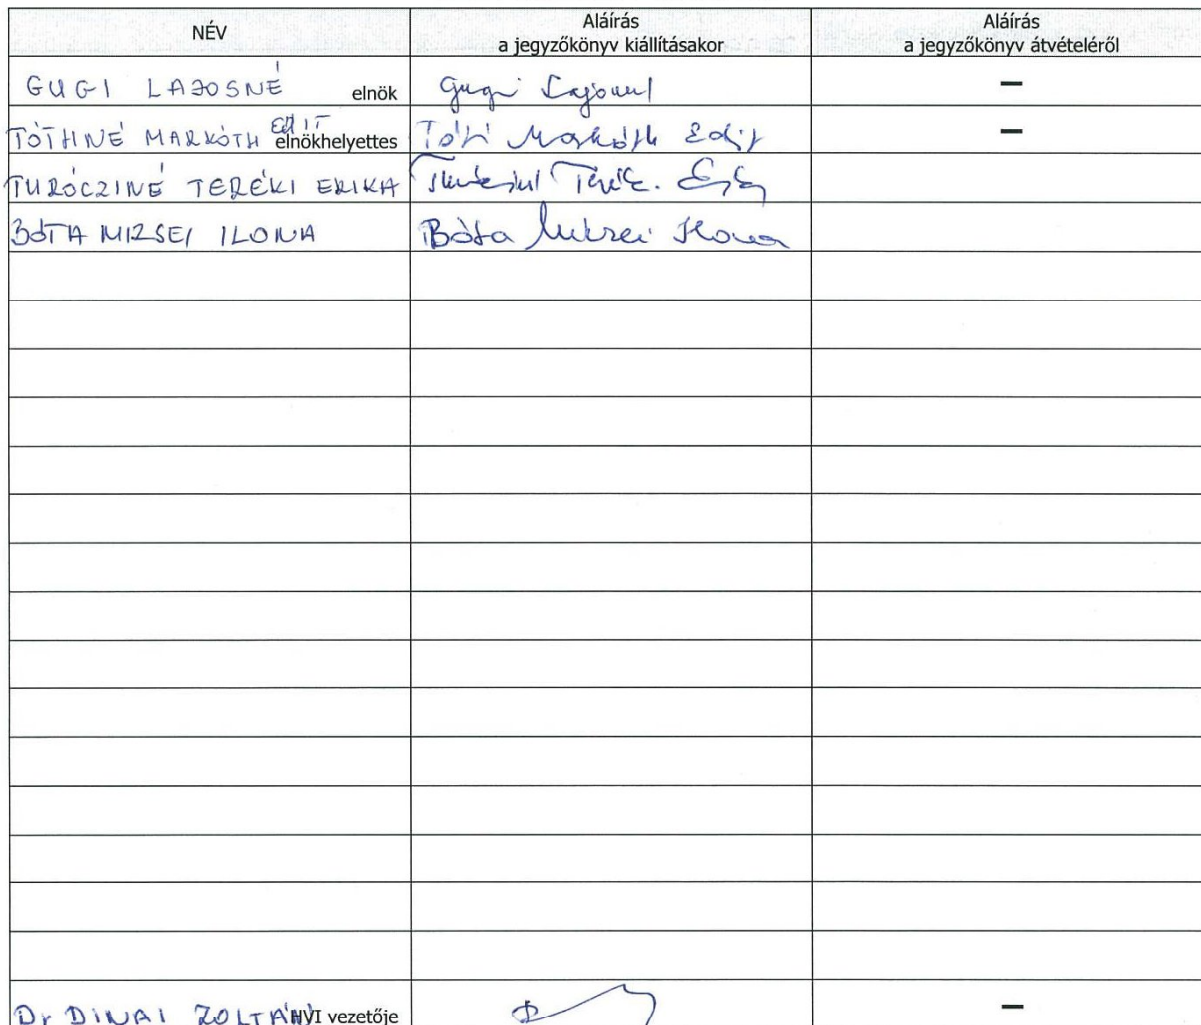 NÉV
Aláírás
a jegyzőkönyv kiállításakor
Aláírás
a jegyzőkönyv átvételéről
GUGI LAJOSNÉ elnök Gugi Lajosné –
TÓTHNÉ MARKÓTH EDIT elnökhelyettes Tóthné Markóth Edit –
TURÓCZINÉ TERÉKI ERIKA
BÓTA MIZSEI ILONA Bóta Mizsei Ilona
Dr DINAI ZOLTÁN HVI vezetője –